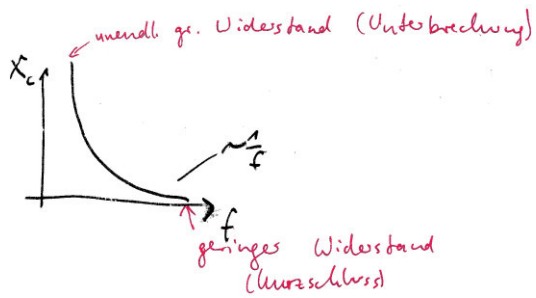 unendl. gr. Widerstand (Unterbrechung)
X_c
~ 1/f
f
geringes Widerstand
(Kurzschluss)